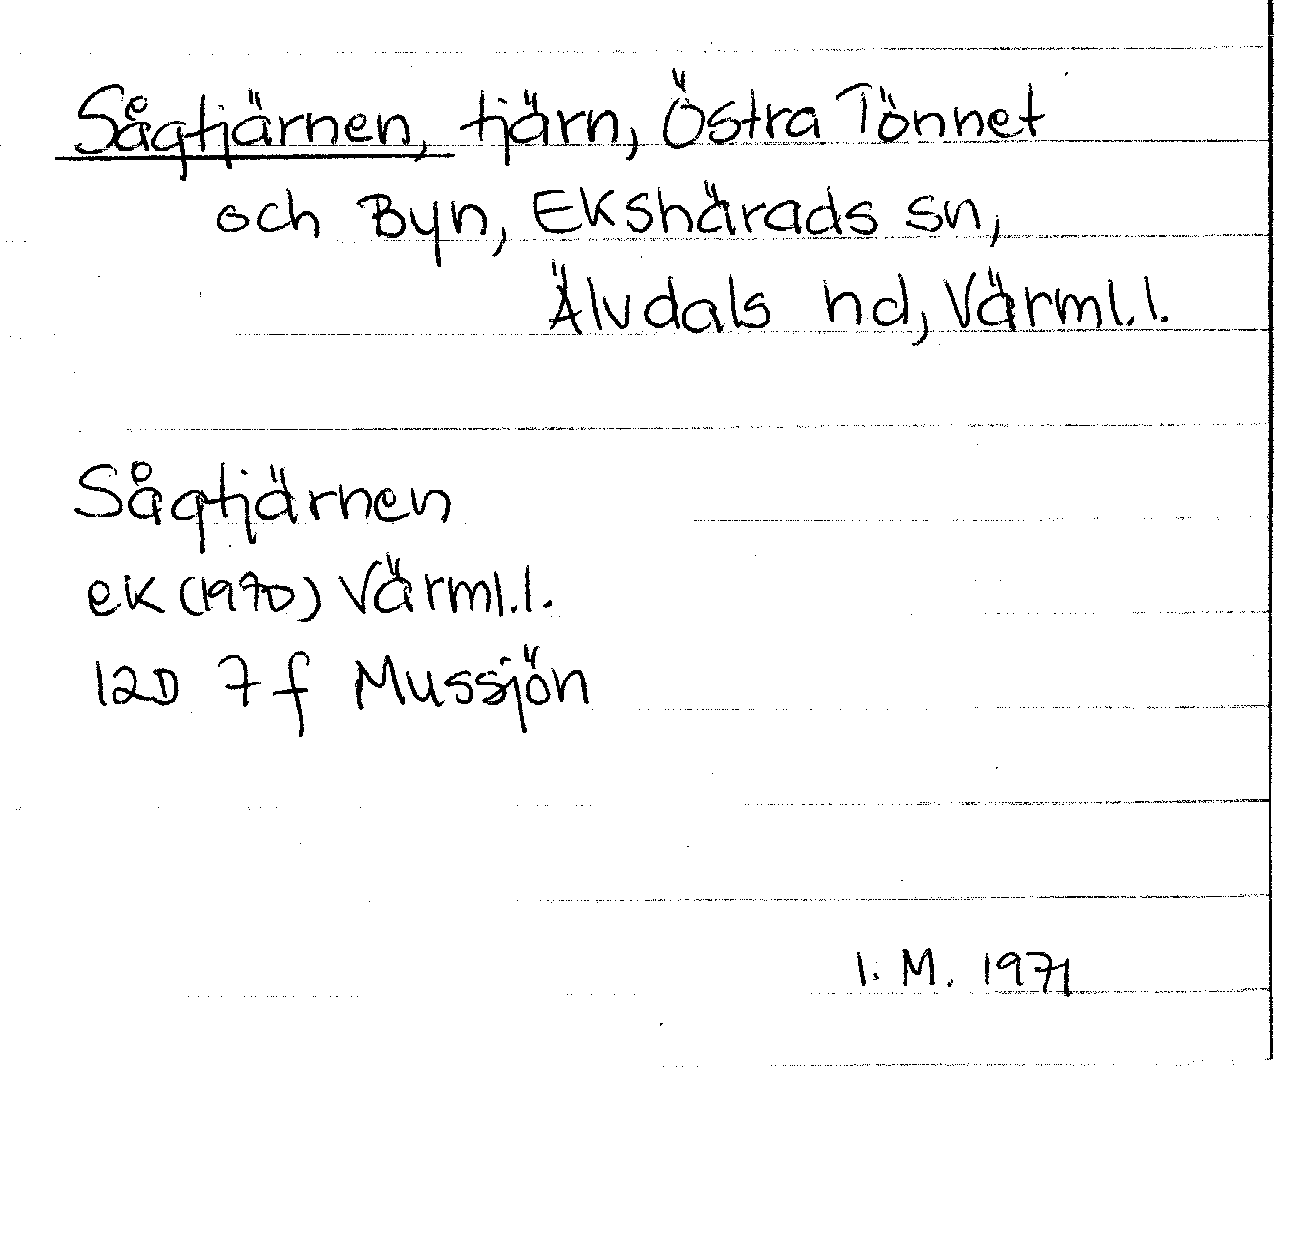 Sågtjärnen, tjärn, Östra Tönnet
och Byn, Ekshärads sn,
Älvdals hd, Värml.l.
Sågtjärnen
ek (1970) Värml.l.
12D 7f Mussjön
I. M. 1971